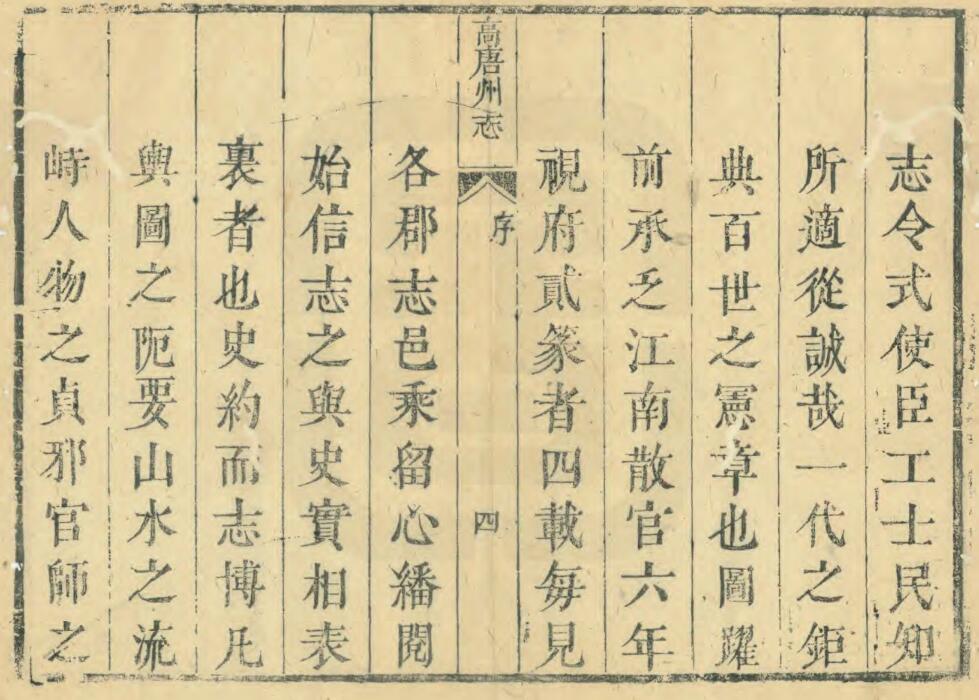 志令式使臣工士民知
所適從誠哉一代之鉅
典百世之憲章也圖躍
前承乏江南散官六年
視府貳篆者四載每見
高唐州志 序 四
各郡志邑乘留心繙閱
始信志之與史實相表
裏者也史約而志博凡
輿圖之阨要山水之流
峙人物之貞邪官師之